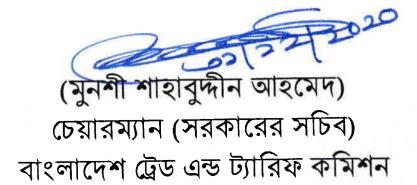 (মুনশী শাহাবুদ্দীন আহমেদ)
চেয়ারম্যান (সরকারের সচিব)
বাংলাদেশ ট্রেড এন্ড ট্যারিফ কমিশন